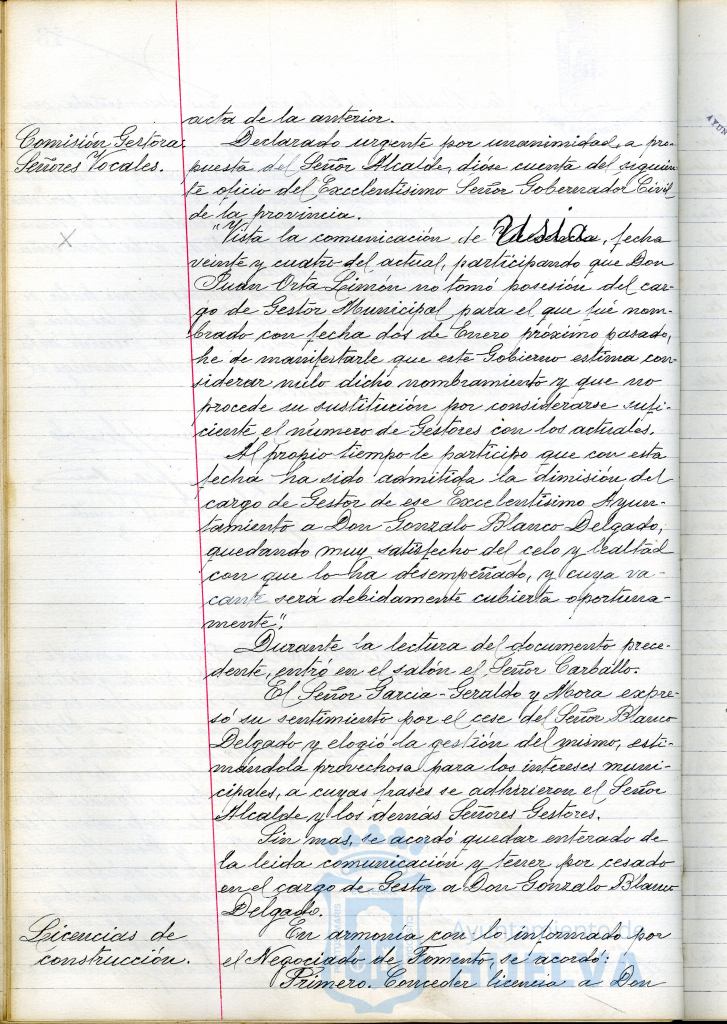 acta de la anterior.
Comisión Gestora:
Señores Vocales.
Declarado urgente por unanimidad, a pro-
puesta del Señor Alcalde, dióse cuenta del siguien-
te oficio del Excelentísimo Señor Gobernador Civil
de la provincia.
"Vista la comunicación de Usía, fecha
veinte y cuatro del actual, participando que Don
Juan Orta Limón no tomó posesión del car-
go de Gestor Municipal para el que fué nom-
brado con fecha dos de Enero próximo pasado,
he de manifestarle que este Gobierno estima con-
siderar nulo dicho nombramiento y que no
procede su sustitución por considerarse sufi-
ciente el número de Gestores con los actuales.
Al propio tiempo le participo que con esta
fecha ha sido admitida la dimisión del
cargo de Gestor de ese Excelentísimo Ayun-
tamiento a Don Gonzalo Blanco Delgado,
quedando muy satisfecho del celo y lealtad
con que lo ha desempeñado, y cuya va-
cante será debidamente cubierta oportuna-
mente".
Durante la lectura del documento prece-
dente, entró en el salón el Señor Carballo.
El Señor García-Geraldo y Mora expre-
só su sentimiento por el cese del Señor Blanco
Delgado y elogió la gestión del mismo, esti-
mándola provechosa para los intereses muni-
cipales, a cuyas frases se adhirieron el Señor
Alcalde y los demás Señores Gestores.
Sin mas, se acordó quedar enterado de
la leida comunicación y tener por cesado
en el cargo de Gestor a Don Gonzalo Blanco
Delgado.
Licencias de
construcción.
En armonía con lo informado por
el Negociado de Fomento, se acordó:
Primero. Conceder licencia a Don
Ayuntamiento de
HUELVA